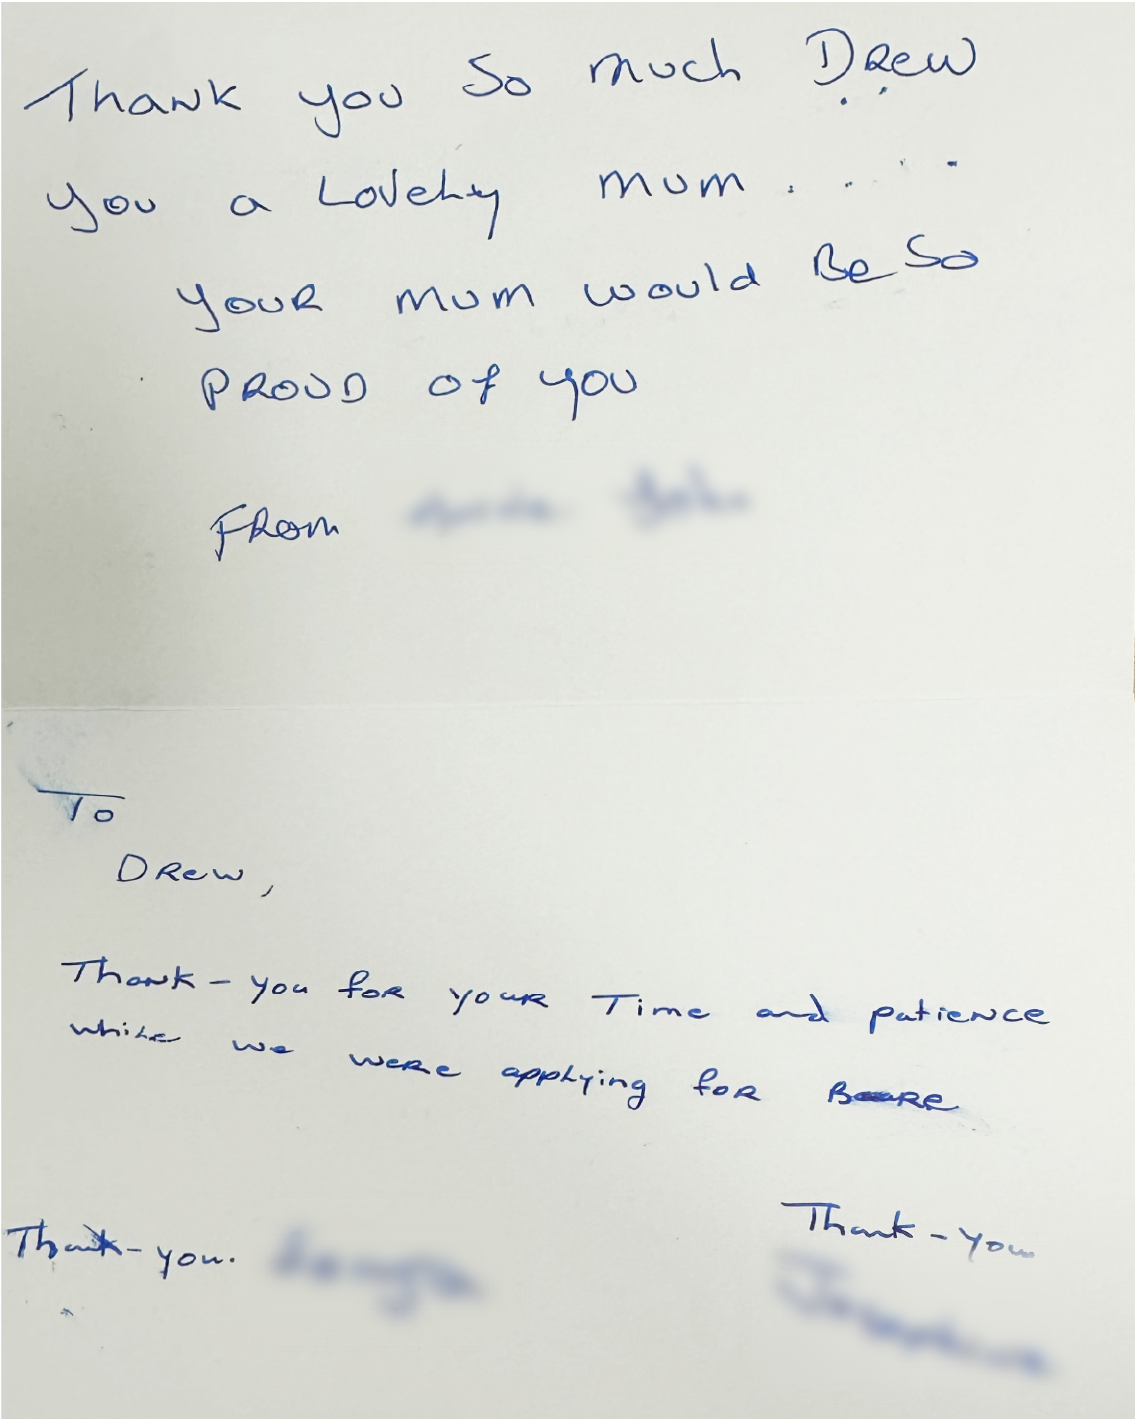 Thank you so much Drew
you a Lovely mum....
your mum would Be so
PROUD of you
From
To
Drew,
Thank-you for your Time and patience
while we were applying for
Thank-you.
Thank-you